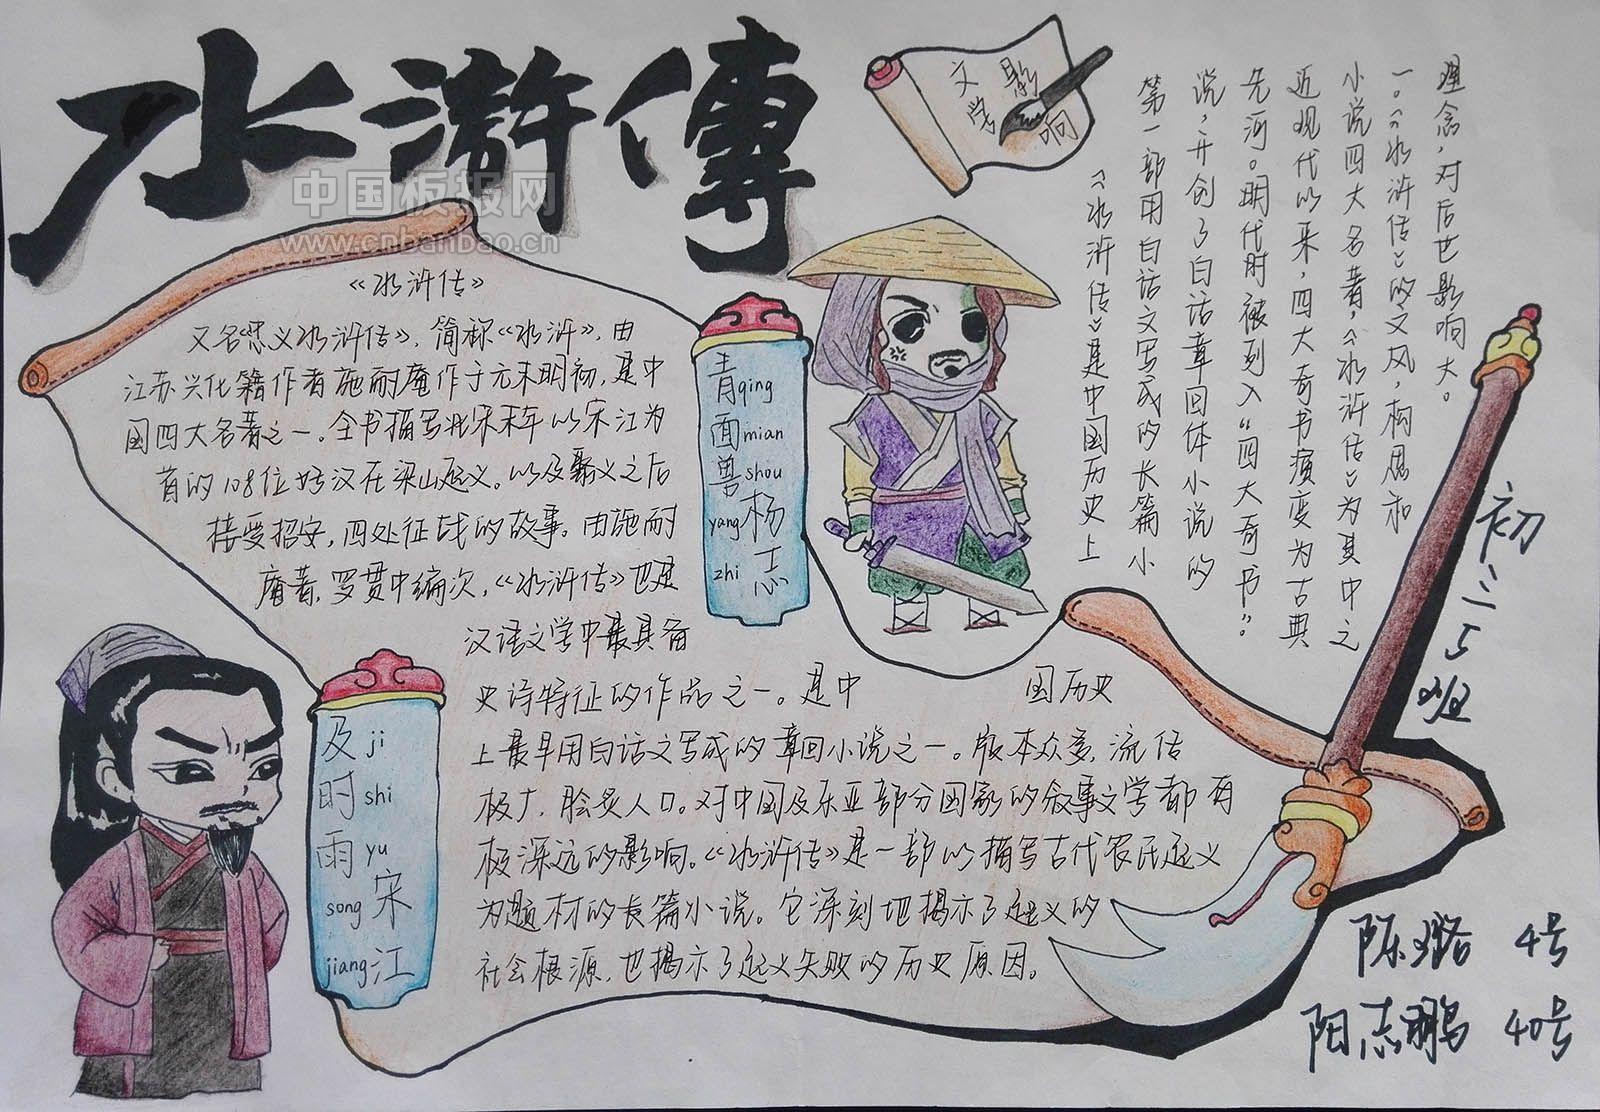 水滸傳
中国板报网
www.cnbanbao.cn
《水浒传》
又名《忠义水浒传》，简称《水浒》，由
江苏兴化籍作者施耐庵作于元末明初，是中
国四大名著之一。全书描写北宋末年以宋江为
首的108位好汉在梁山起义。以及聚义之后
接受招安，四处征战的故事。由施耐
庵著，罗贯中编次，《水浒传》也是
汉语文学中最具备
史诗特征的作品之一。是中国历史
上最早用白话文写成的章回小说之一。版本众多，流传
极广，脍炙人口。对中国及东亚部分国家的叙事文学都有
极深远的影响。《水浒传》是一部以描写古代农民起义
为题材的长篇小说。它深刻地揭示了起义的
社会根源，也揭示了起义失败的历史原因。
青qing
面mian
兽shou
yang杨
zhi志
及ji
时shi
雨yu
song宋
jiang江
文学
影响
《水浒传》是中国历史上
第一部用白话文写成的长篇小
说，开创了白话章回体小说的
先河。明代时被列入“四大奇书”。
近现代以来，四大奇书演变为古典
小说四大名著，《水浒传》为其中之
一。《水浒传》的文风，构思和
理念，对后世影响大。
初二5班
陈璐 4号
阳志鹏 40号